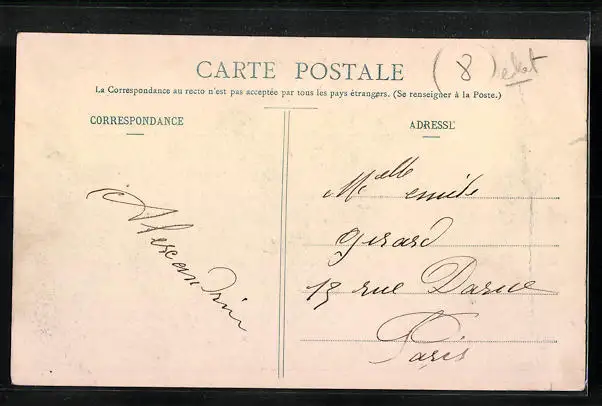 CARTE POSTALE
(8) elat
La Correspondance au recto n'est pas acceptée par tous les pays étrangers. (Se renseigner à la Poste.)
CORRESPONDANCE
Alexandrin
ADRESSE
Melle emile
gerard
13 rue Darue
Paris